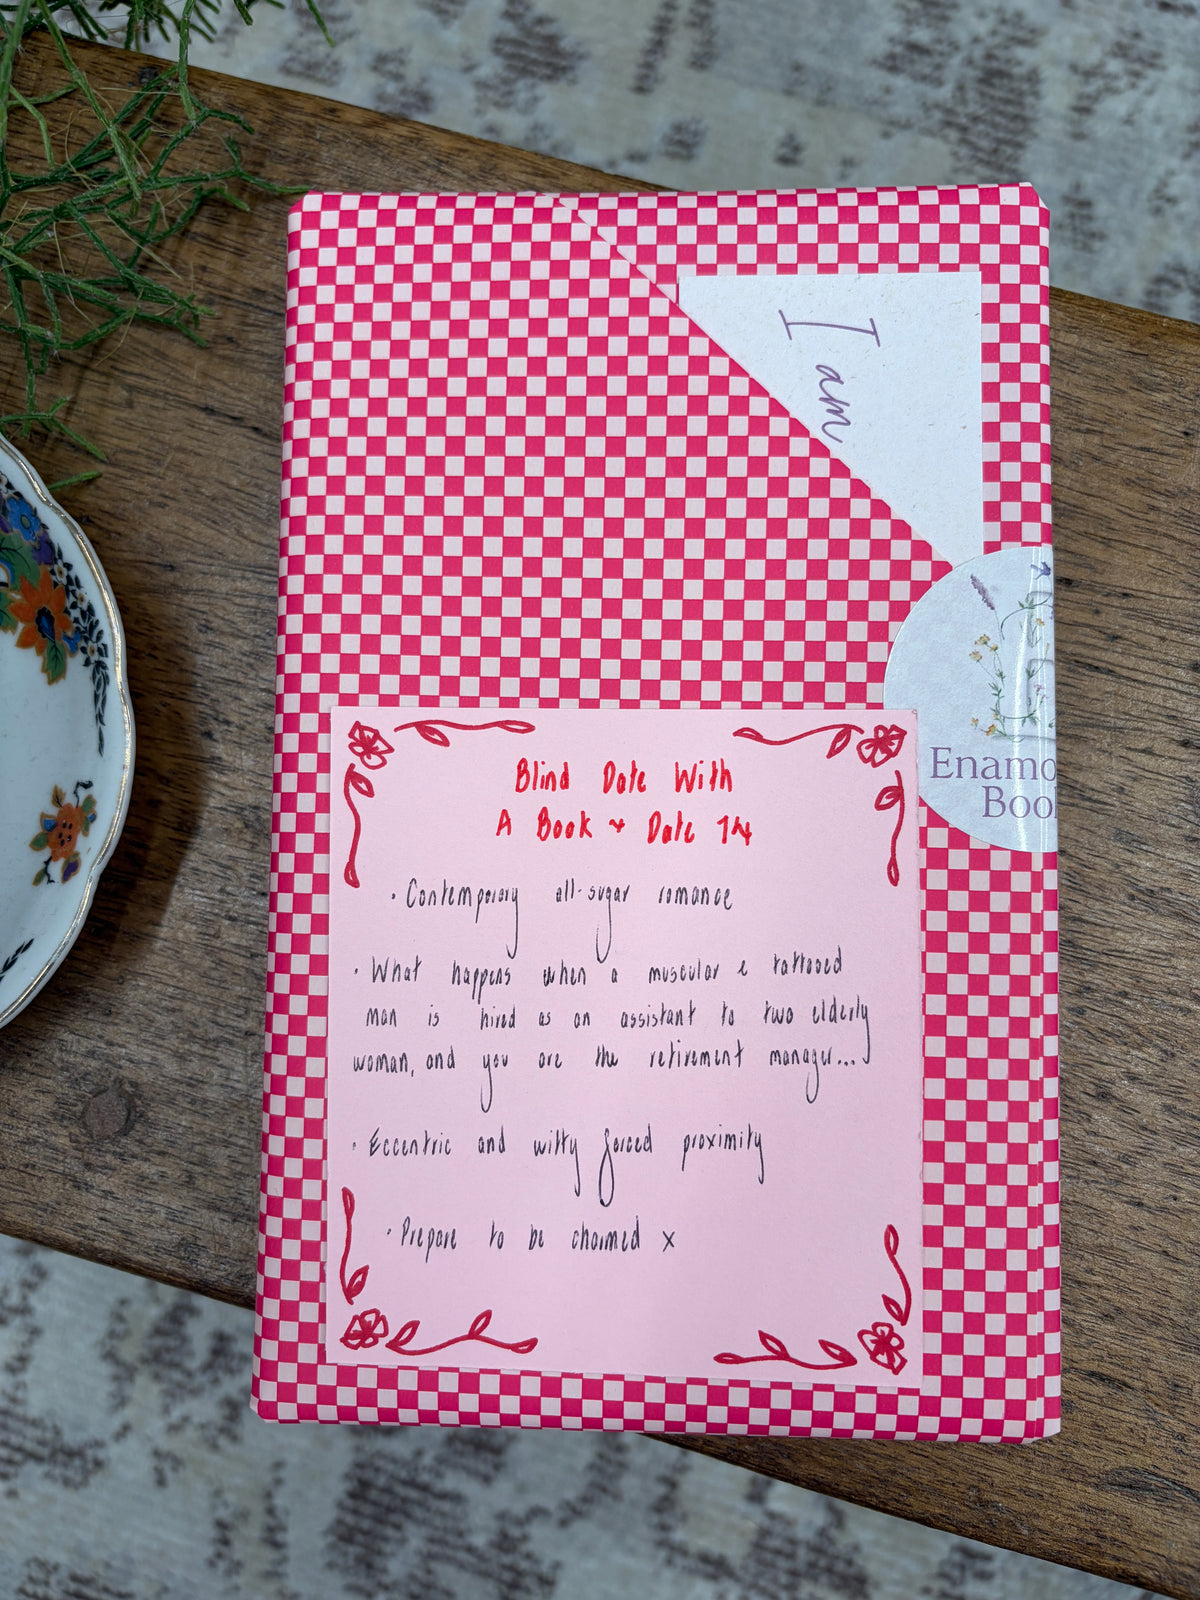 I am
Enamo
Boo
Blind Date With
A Book + Date 14
• Contemporary all-sugar romance
• What happens when a muscular & tattooed
man is hired as an assistant to two elderly
woman, and you are the retirement manager...
• Eccentric and witty forced proximity
• Prepare to be charmed x